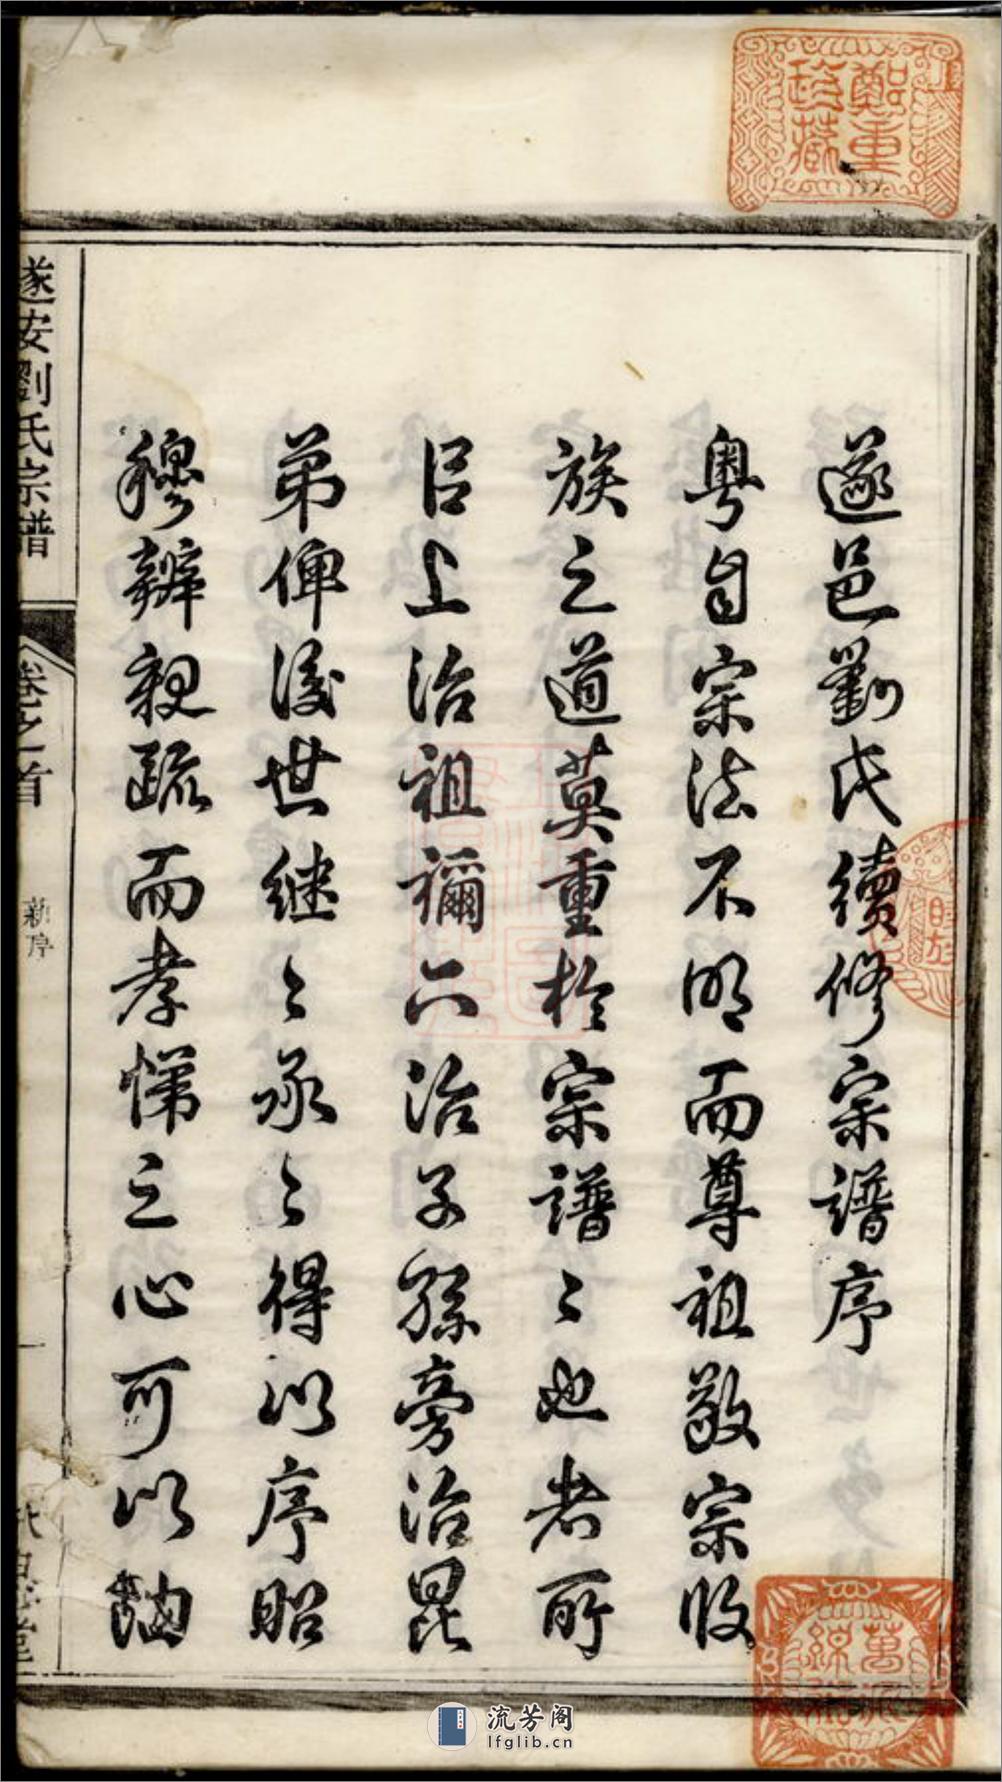 遂邑劉氏續修宗譜序
粵自宗法不明而尊祖敬宗收
族之道莫重於宗譜〻也者所
㠯上治祖禰下治子孫旁治昆
弟俾後世繼〻承〻得以序昭
穆辨親疏而孝悌之心可以油
遂安劉氏宗譜
卷之首
新序
一
鄭重
珍藏
萬派
綿衍
睦族
流芳阁
lfglib.cn